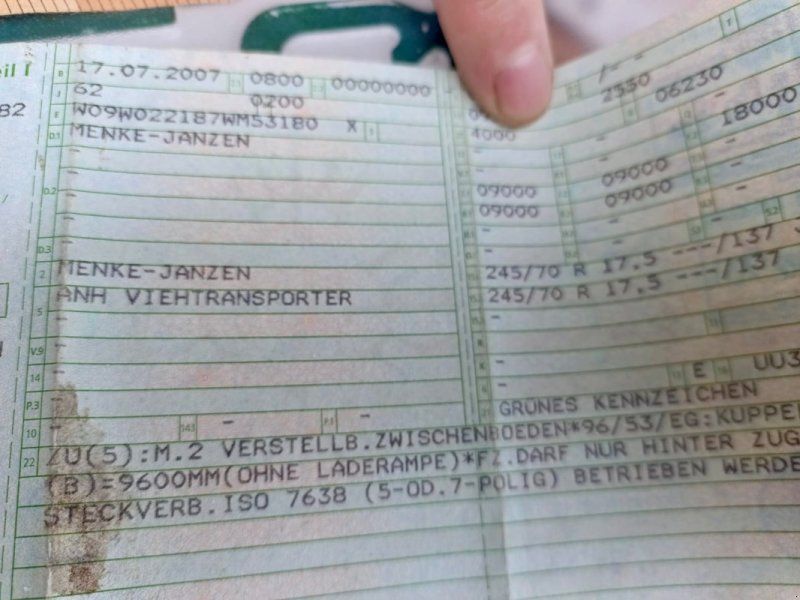 eil I
B 17.07.2007 0800 00000000 -
J 62 0200 2550 06230
82
E W09W022187WMS3180 X 4000 - 18000
D.1 MENKE-JANZEN - -
- - 09000
D.2 - 09000 09000
- 09000
D.3 -
2 MENKE-JANZEN 245/70 R 17.5 ---/137
ANH VIEHTRANSPORTER 245/70 R 17.5 ---/137
5 - -
V.9 - -
14 - - E UU3
P.3 - GRÜNES KENNZEICHEN
10 - 14.1 - P.1 -
22 ZU(5):M.2 VERSTELLB.ZWISCHENBOEDEN*96/53/EG:KUPPE
(B)=9600MM(OHNE LADERAMPE)*FZ.DARF NUR HINTER ZUG
STECKVERB.ISO 7638 (5-OD.7-POLIG) BETRIEBEN WERDE